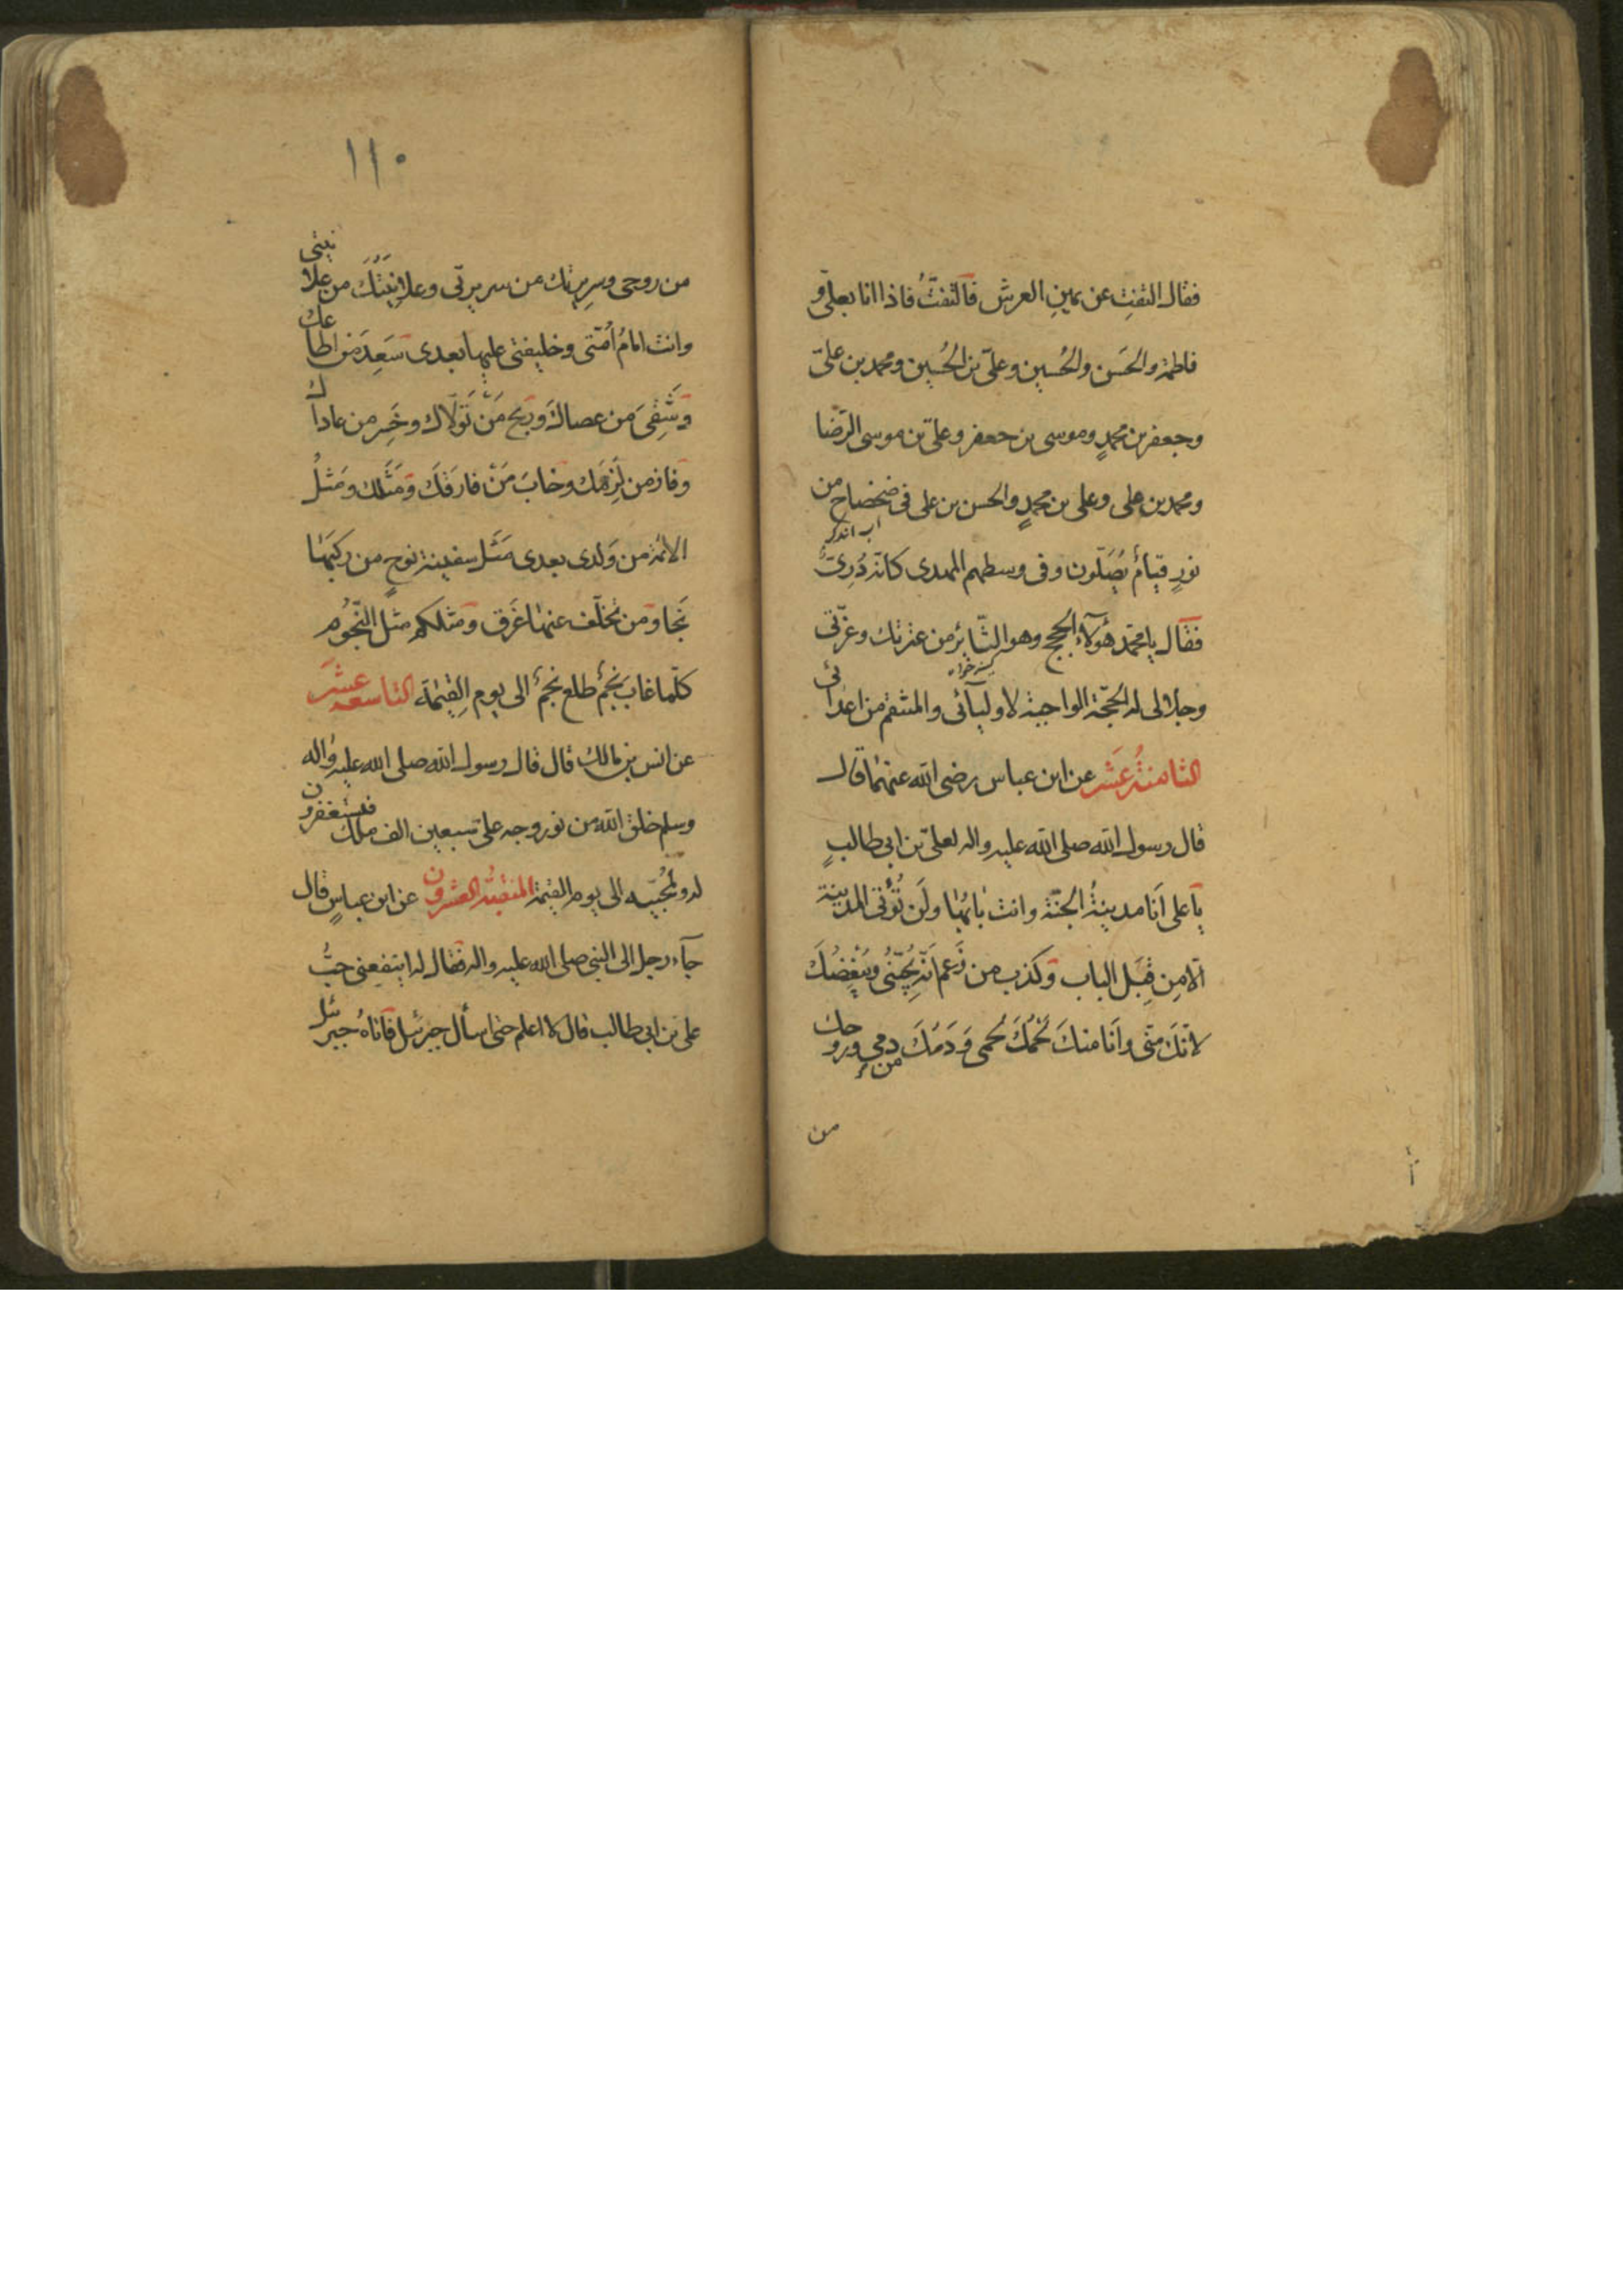 فقال التفت عن يمين العرش فالتفتُّ فاذا انا بعلىّ و
فاطمة والحَسَن والحُسين وعلىّ بن الحُسين ومحمد بن علىّ
وجعفر بن محمدٍ وموسى بن جعفر وعلىّ بن موسى الرّضا
ومحمد بن على وعلى بن محمدٍ والحسن بن على فى ضحضاح من
اب اندك
نورٍ قيامٌ يُصَلّون وفى وسطهم المهدى كانّه دُرِىٌّ
فقال يا محمّد هؤلآء الحجج وهو الثّائر من عترتك وعزّتى
كينه خواه
وجلالى له الحجّة الواجبة لاوليآئى والمنتقم من اعدائى
الثامنةُ عَشَر عن ابن عباس رضى الله عنهما قال
قال رسول الله صلى الله عليه واله لعلىّ بن ابى طالبٍ
يا على اَنَا مدينةُ الجنّة وانت بابُها ولَن تُؤتى المدينة
الّا مِن قِبَل الباب وكذب من زَعم اَنّه يُحبّنى ويُبْغِضُكَ
لانّكَ منّى واَنَا منكَ لَحمُكَ لَحمى وَدَمُكَ من دمى وروحك
من
١١٠
من روحى وسريرتك من سريرتى وعلانِيَتُكَ من علانيتى
وانت امامُ اُمّتى وخليفتى عليها بعدى سَعِدَ من اطاعك
وَشَقِىَ من عصاكَ ورَبِحَ مَنْ تَوَلّاك وخَسِر من عاداك
وفاز من لَزِمَك وخابَ مَنْ فارقَكَ ومَثَلك ومَثَلُ
الائمة من وَلدى بعدى مَثَل سفينة نوحٍ من ركبَها
نَجا ومن تخلّف عنها غَرق ومثلكم مثل النّجُوم
كلّما غابَ نجمٌ طلع نجمٌ الى يوم القِيٰمة التاسعة عشَر
عن انس بن مالك قال قال رسول الله صلى الله عليه واله
وسلم خلق الله من نور وجه علىّ سبعين الف ملك فيستغفرون
له ولمُحبّيه الى يوم القيٰمة المنقبةُ العشرون عن ابن عباسٍ قال
جآء رجل الى النبى صلى الله عليه واله فقال له اينفعنى حبُّ
على بن ابى طالب قال لا اعلم حتى اسأل جبرئيل فاتاهُ جبرئيل